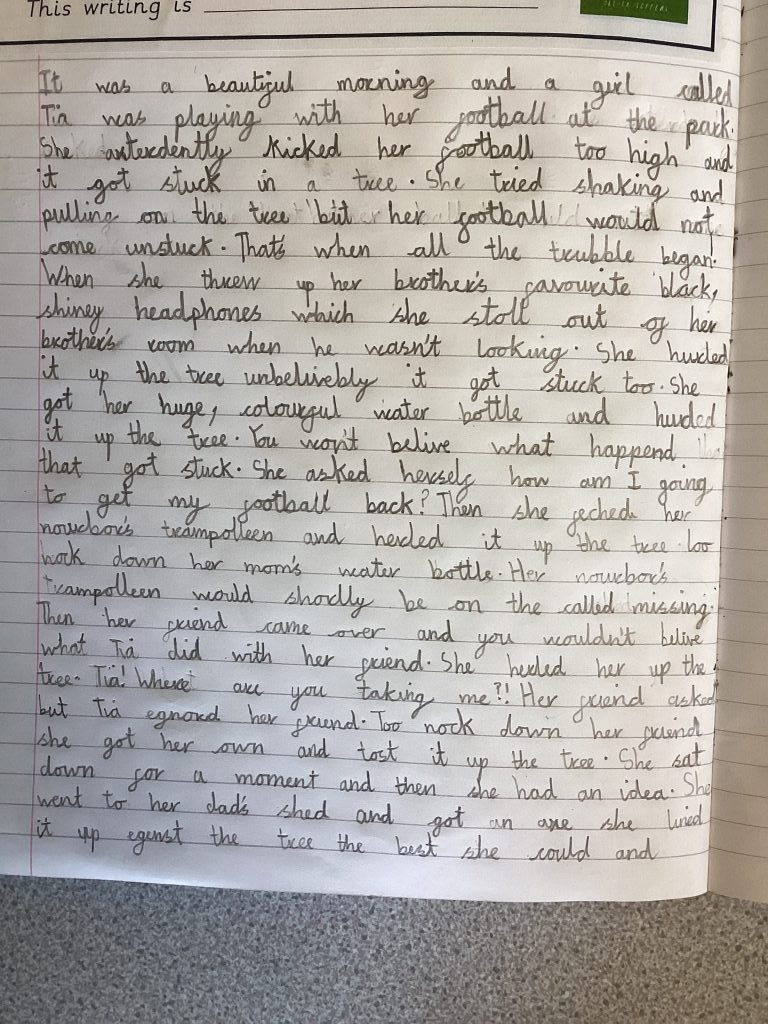 This writing is
It was a beautiful morning and a girl called
Tia was playing with her football at the park.
She axterdently kicked her football too high and
it got stuck in a tree. She tried shaking and
pulling on the tree but her football would not
come unstuck. That's when all the trubble began.
When she threw up her brother's favourite black,
shiney headphones which she stoll out of her
brother's room when he wasn't looking. She hurded
it up the tree unbelivebly it got stuck too. She
got her huge, colourful water bottle and hurded
it up the tree. You won't belive what happend
that got stuck. She asked herself how am I going
to get my football back? Then she feched her
nourbor's trampolleen and herled it up the tree too
nock down her mom's water bottle. Her nourbor's
trampolleen would shordly be on the called missing.
Then her friend came over and you wouldn't belive
what Tia did with her friend. She herled her up the
tree. Tia! Where are you taking me?!! Her friend asked
but Tia egnord her friend. Too nock down her friend
she got her own and tost it up the tree. She sat
down for a moment and then she had an idea. She
went to her dad's shed and got an axe she lined
it up egenst the tree the best she could and